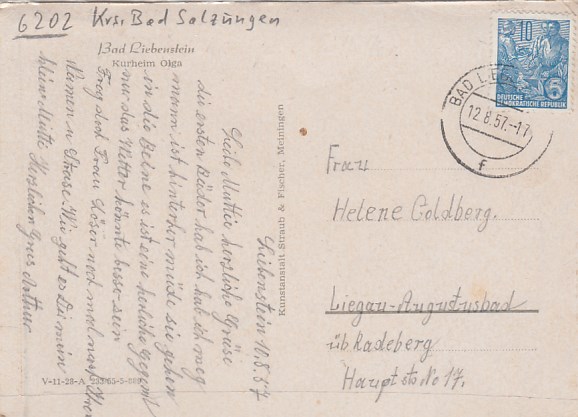 6202 Krs. Bad Salzungen
Bad Liebenstein
Kurheim Olga
Liebenstein 10.8.57
Liebe Mutter herzliche Grüse
die ersten Bäder hab ich hab ich weg
mann ist hinterher müde, sie gehen
in die Beine es ist eine herliche gegent
nur das Wetter könnte besser sein
Frag doch Frau Löser noch mal nach Ihren
Namen u Strase. Wie geht es Dir mein
kleine Mutti Herzlichen Grus
V-11-28-A
Kunstanstalt Straub & Fischer, Meiningen
DEUTSCHE
DEMOKRATISCHE REPUBLIK
BAD LIEBE
12.8.57.-17
f
Frau
Helene Goldberg.
Liegau-Augustusbad
üb Radeberg
Hauptstr No 17.